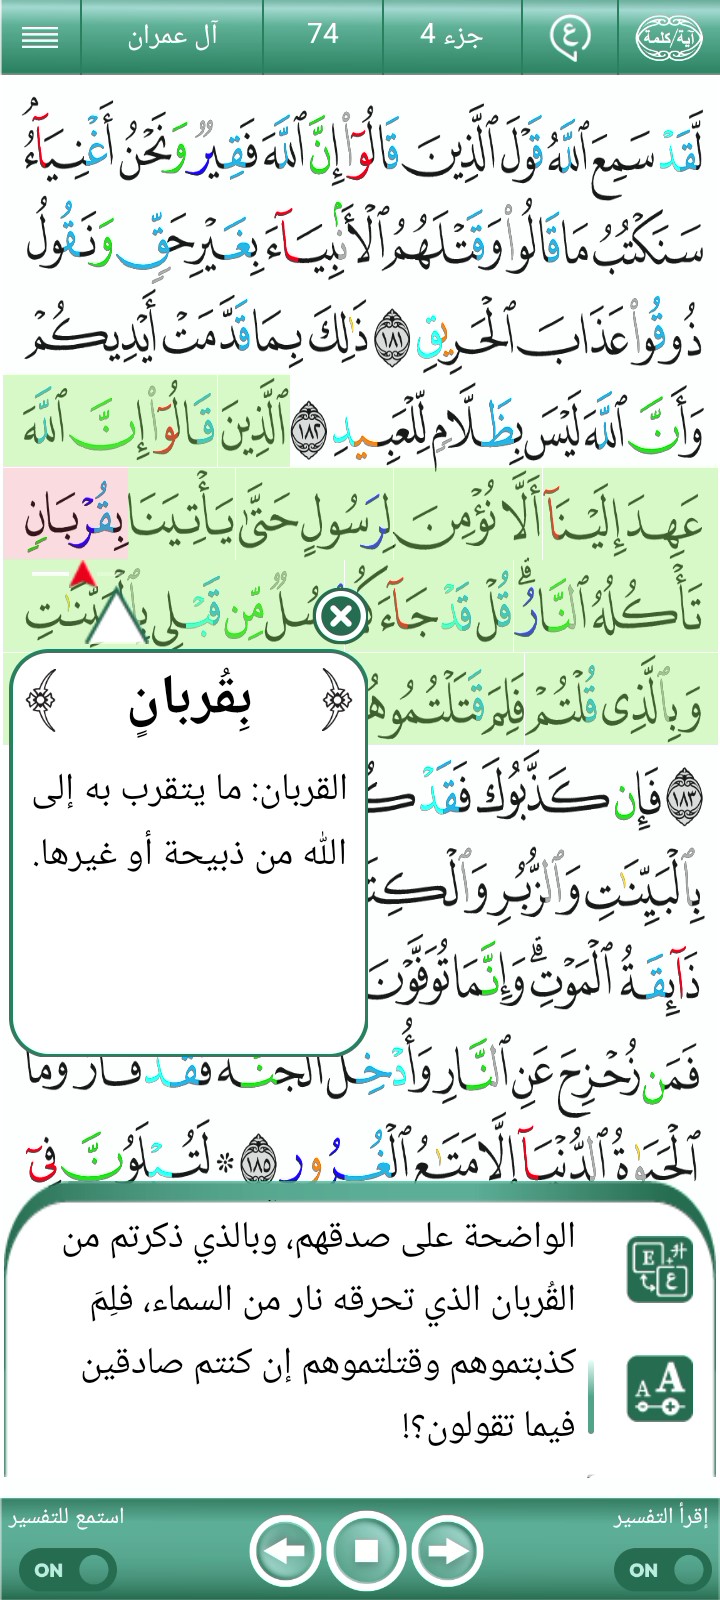 آية/كلمة ع جزء 4 74 آل عمران
لَّقَدْ سَمِعَ ٱللَّهُ قَوْلَ ٱلَّذِينَ قَالُوٓا۟ إِنَّ ٱللَّهَ فَقِيرٌ وَنَحْنُ أَغْنِيَآءُ ۘ
سَنَكْتُبُ مَا قَالُوا۟ وَقَتْلَهُمُ ٱلْأَنۢبِيَآءَ بِغَيْرِ حَقٍّ وَنَقُولُ
ذُوقُوا۟ عَذَابَ ٱلْحَرِيقِ ١٨١ ذَٰلِكَ بِمَا قَدَّمَتْ أَيْدِيكُمْ
وَأَنَّ ٱللَّهَ لَيْسَ بِظَلَّامٍ لِّلْعَبِيدِ ١٨٢ ٱلَّذِينَ قَالُوٓا۟ إِنَّ ٱللَّهَ
عَهِدَ إِلَيْنَآ أَلَّا نُؤْمِنَ لِرَسُولٍ حَتَّىٰ يَأْتِيَنَا بِقُرْبَانٍ
تَأْكُلُهُ ٱلنَّارُ ۗ قُلْ قَدْ جَآءَ مِّن قَبْلِى
وَبِٱلَّذِى قُلْتُمْ فَلِمَ قَتَلْتُمُوهُ
١٨٣ فَإِن كَذَّبُوكَ فَقَدْ
بِٱلْبَيِّنَٰتِ وَٱلزُّبُرِ
ذَآئِقَةُ ٱلْمَوْتِ ۗ وَإِنَّمَا تُوَفَّوْنَ
فَمَن زُحْزِحَ عَنِ ٱلنَّارِ وَأُدْخِلَ ٱلْجَنَّةَ فَقَدْ فَازَ وَمَا
ٱلْحَيَوٰةُ ٱلدُّنْيَآ إِلَّا مَتَٰعُ ٱلْغُرُورِ ١٨٥ * لَتُبْلَوُنَّ فِىٓ
بِقُربانٍ
القربان: ما يتقرب به إلى
الله من ذبيحة أو غيرها.
الواضحة على صدقهم، وبالذي ذكرتم من
القُربان الذي تحرقه نار من السماء، فلِمَ
كذبتموهم وقتلتموهم إن كنتم صادقين
فيما تقولون؟!
إقرأ التفسير استمع للتفسير
ON ON